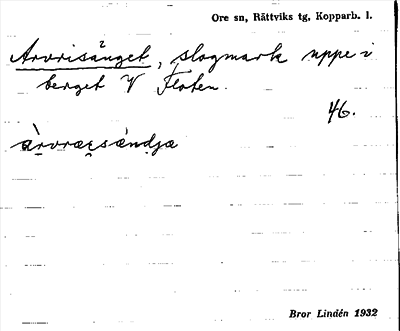 Ore sn, Rättviks tg, Kopparb. l.
Arvrisänget, slogmark uppe i
berget V Floten.
46.
Bror Lindén 1932